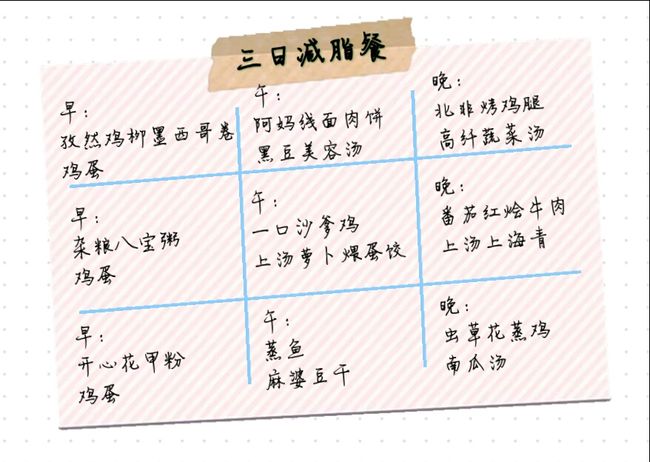 三日减脂餐
早：
孜然鸡柳墨西哥卷
鸡蛋
午：
阿妈线面肉饼
黑豆美容汤
晚：
北非烤鸡腿
高纤蔬菜汤
早：
杂粮八宝粥
鸡蛋
午：
一口沙爹鸡
上汤萝卜煨蛋饺
晚：
番茄红烩牛肉
上汤上海青
早：
开心花甲粉
鸡蛋
午：
蒸鱼
麻婆豆干
晚：
虫草花蒸鸡
南瓜汤